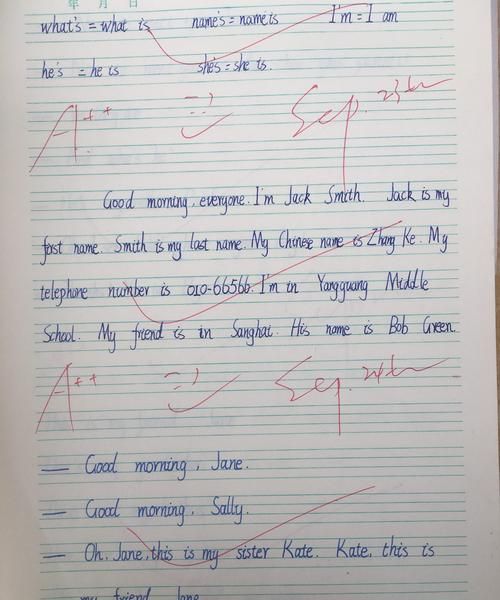 年 月 日
what's = what is name's = name is I'm = I am
he's = he is she's = she is.
A++ Sep. 23th
Good morning, everyone. I'm Jack Smith. Jack is my
first name. Smith is my last name. My Chinese name is Zhang Ke. My
telephone number is 010-66566. I'm in Yangguang Middle
School. My friend is in Sanghai. His name is Bob Green.
A++ Sep. 24th
— Good morning, Jane.
— Good morning, Sally.
— Oh, Jane, this is my sister Kate. Kate, this is
my friend Jane